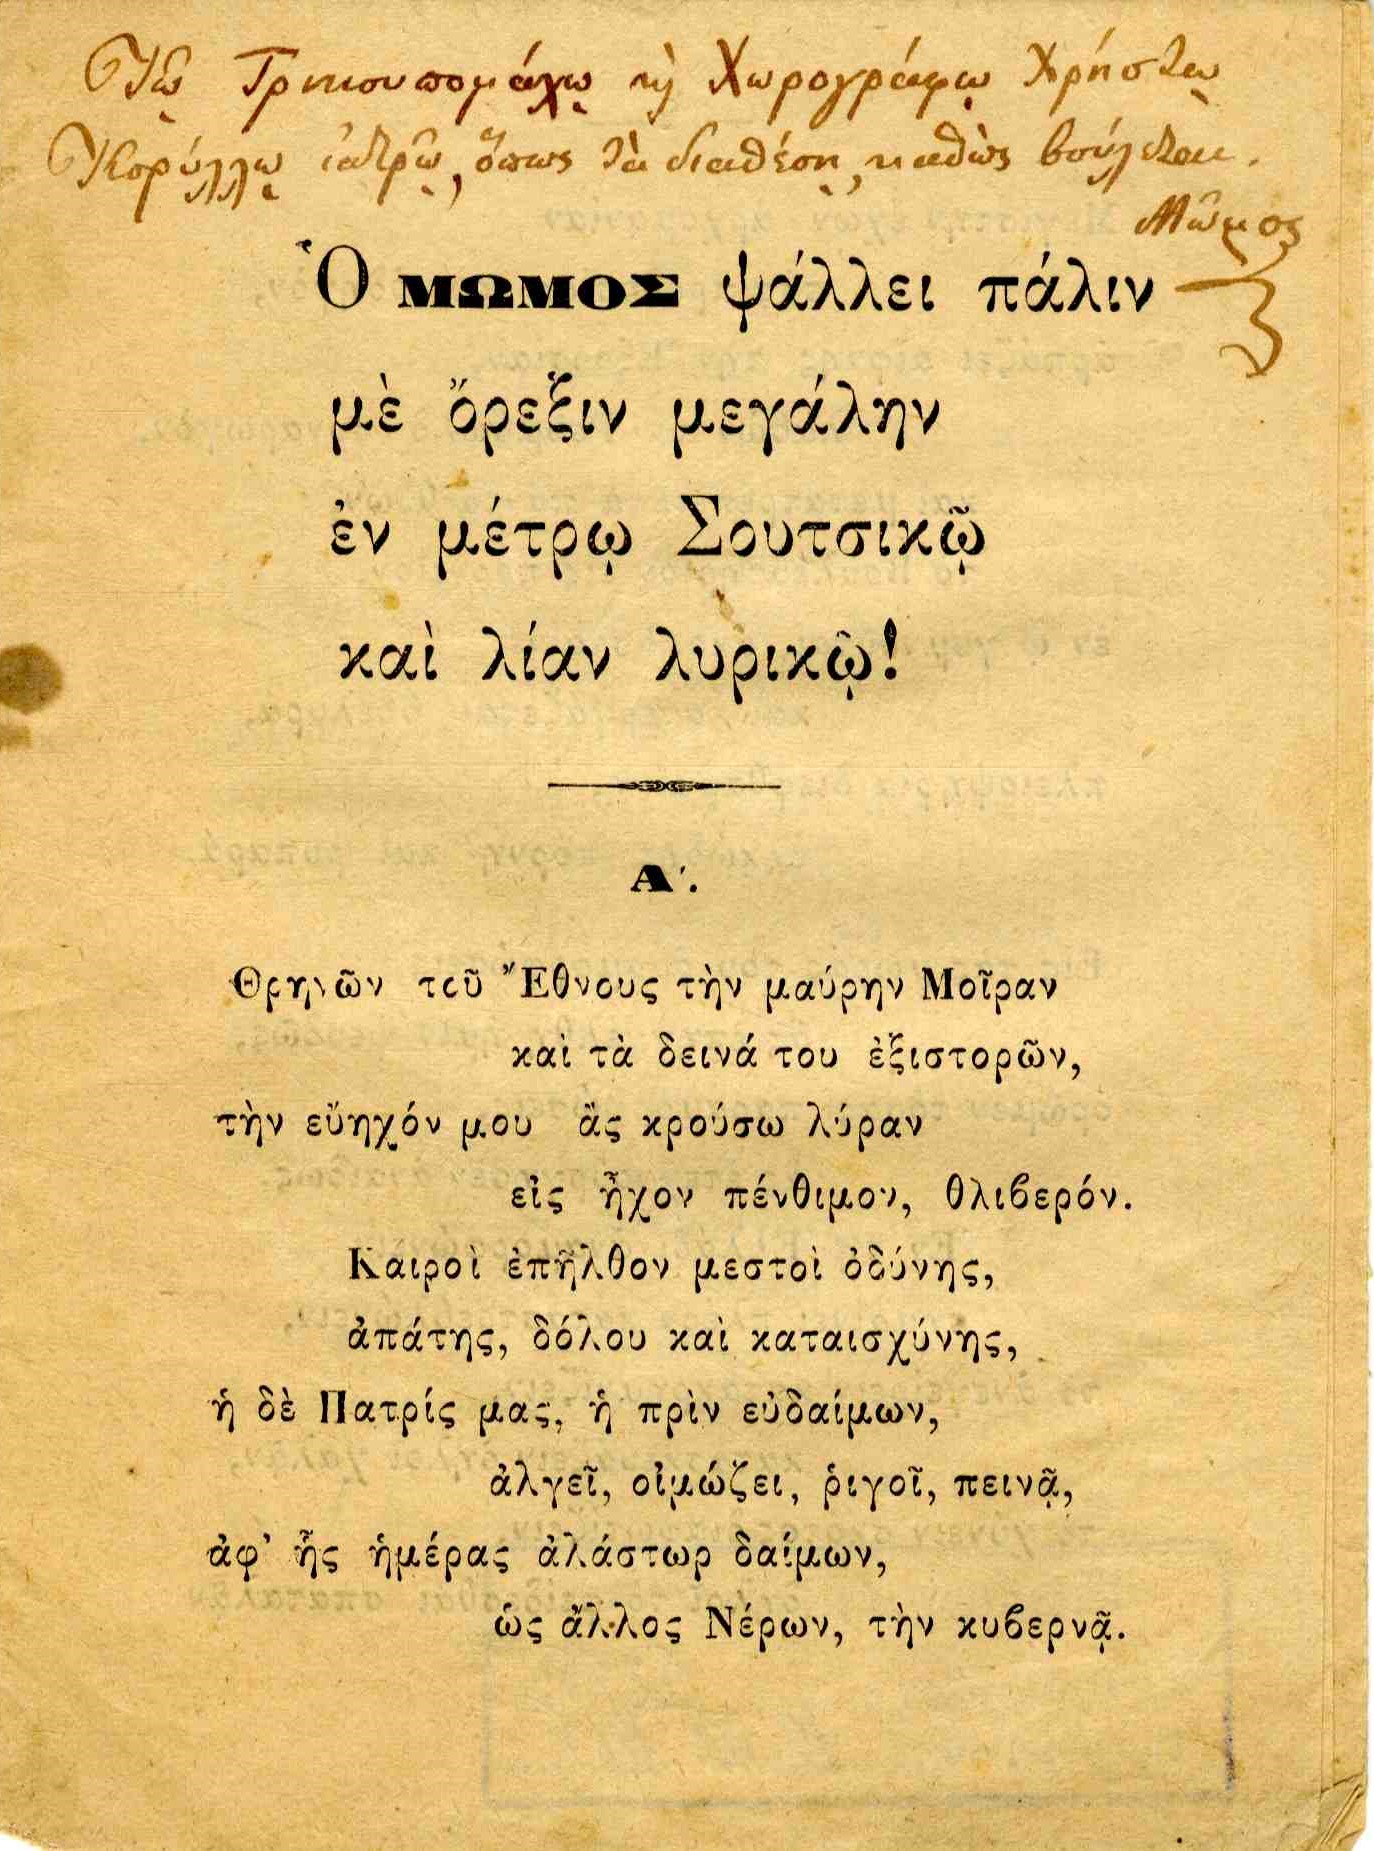 Τῷ Τρικουπομάχῳ κỳ Χωρογράφῳ Χρήστῳ
Κορύλλῳ ἰατρῷ, ὅπως τὰ διαθέσῃ, καθὼς βούλεται.
Μῶμος
Ὁ ΜΩΜΟΣ ψάλλει πάλιν
μὲ ὄρεξιν μεγάλην
ἐν μέτρῳ Σουτσικῷ
καὶ λίαν λυρικῷ!
Α΄.
Θρηνῶν τοῦ Ἔθνους τὴν μαύρην Μοῖραν
καὶ τὰ δεινά του ἐξιστορῶν,
τὴν εὔηχόν μου ἂς κρούσω λύραν
εἰς ἦχον πένθιμον, θλιβερόν.
Καιροὶ ἐπῆλθον μεστοὶ ὀδύνης,
ἀπάτης, δόλου καὶ καταισχύνης,
ἡ δὲ Πατρίς μας, ἡ πρὶν εὐδαίμων,
ἀλγεῖ, οἰμώζει, ῥιγοῖ, πεινᾷ,
ἀφ' ἧς ἡμέρας ἀλάστωρ δαίμων,
ὡς ἄλλος Νέρων, τὴν κυβερνᾷ.